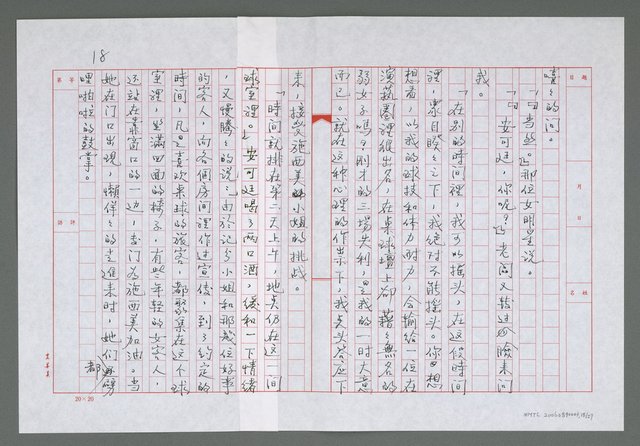 嘻的问。
「『当然。』那位女明星说。
「『安可廷,你呢?』老闆又转过脸来问
我。
「在别的時间裡,我可以摇头,在这個時间
裡,众目睽々之下,我绝对不能摇头。你想
想看,以我的球技和体力耐力,会输给一位在
演藝圈裡很出名,在桌球壇上却藉々無名的
弱女子嗎?刚才的三場失利,是我的一时大意
而已。就在这种心理的作祟下,我点头答应下
来,接受施西美小姐的挑战。
「時间就排在第二天上午,地点仍在这一间
球室裡。」安可廷喝了两口酒,缓和一下情绪
,又慢騰々的说:「由於记分小姐和那幾位好事
的客人,向各個房间裡作过宣传,到了约定的
時间,凡是喜欢桌球的旅客,都聚集在这个球
室裡,坐满四面的椅子,有些年轻的女客人,
还站在靠窗口的一边,专门为施西美加油。当
她在门口出现,懒佯々的走進来时,她们都劈
哩啪啦的鼓掌。
18
日期
月
日
姓名
等第
評語
20×20
NMTL 20060890009,18/27